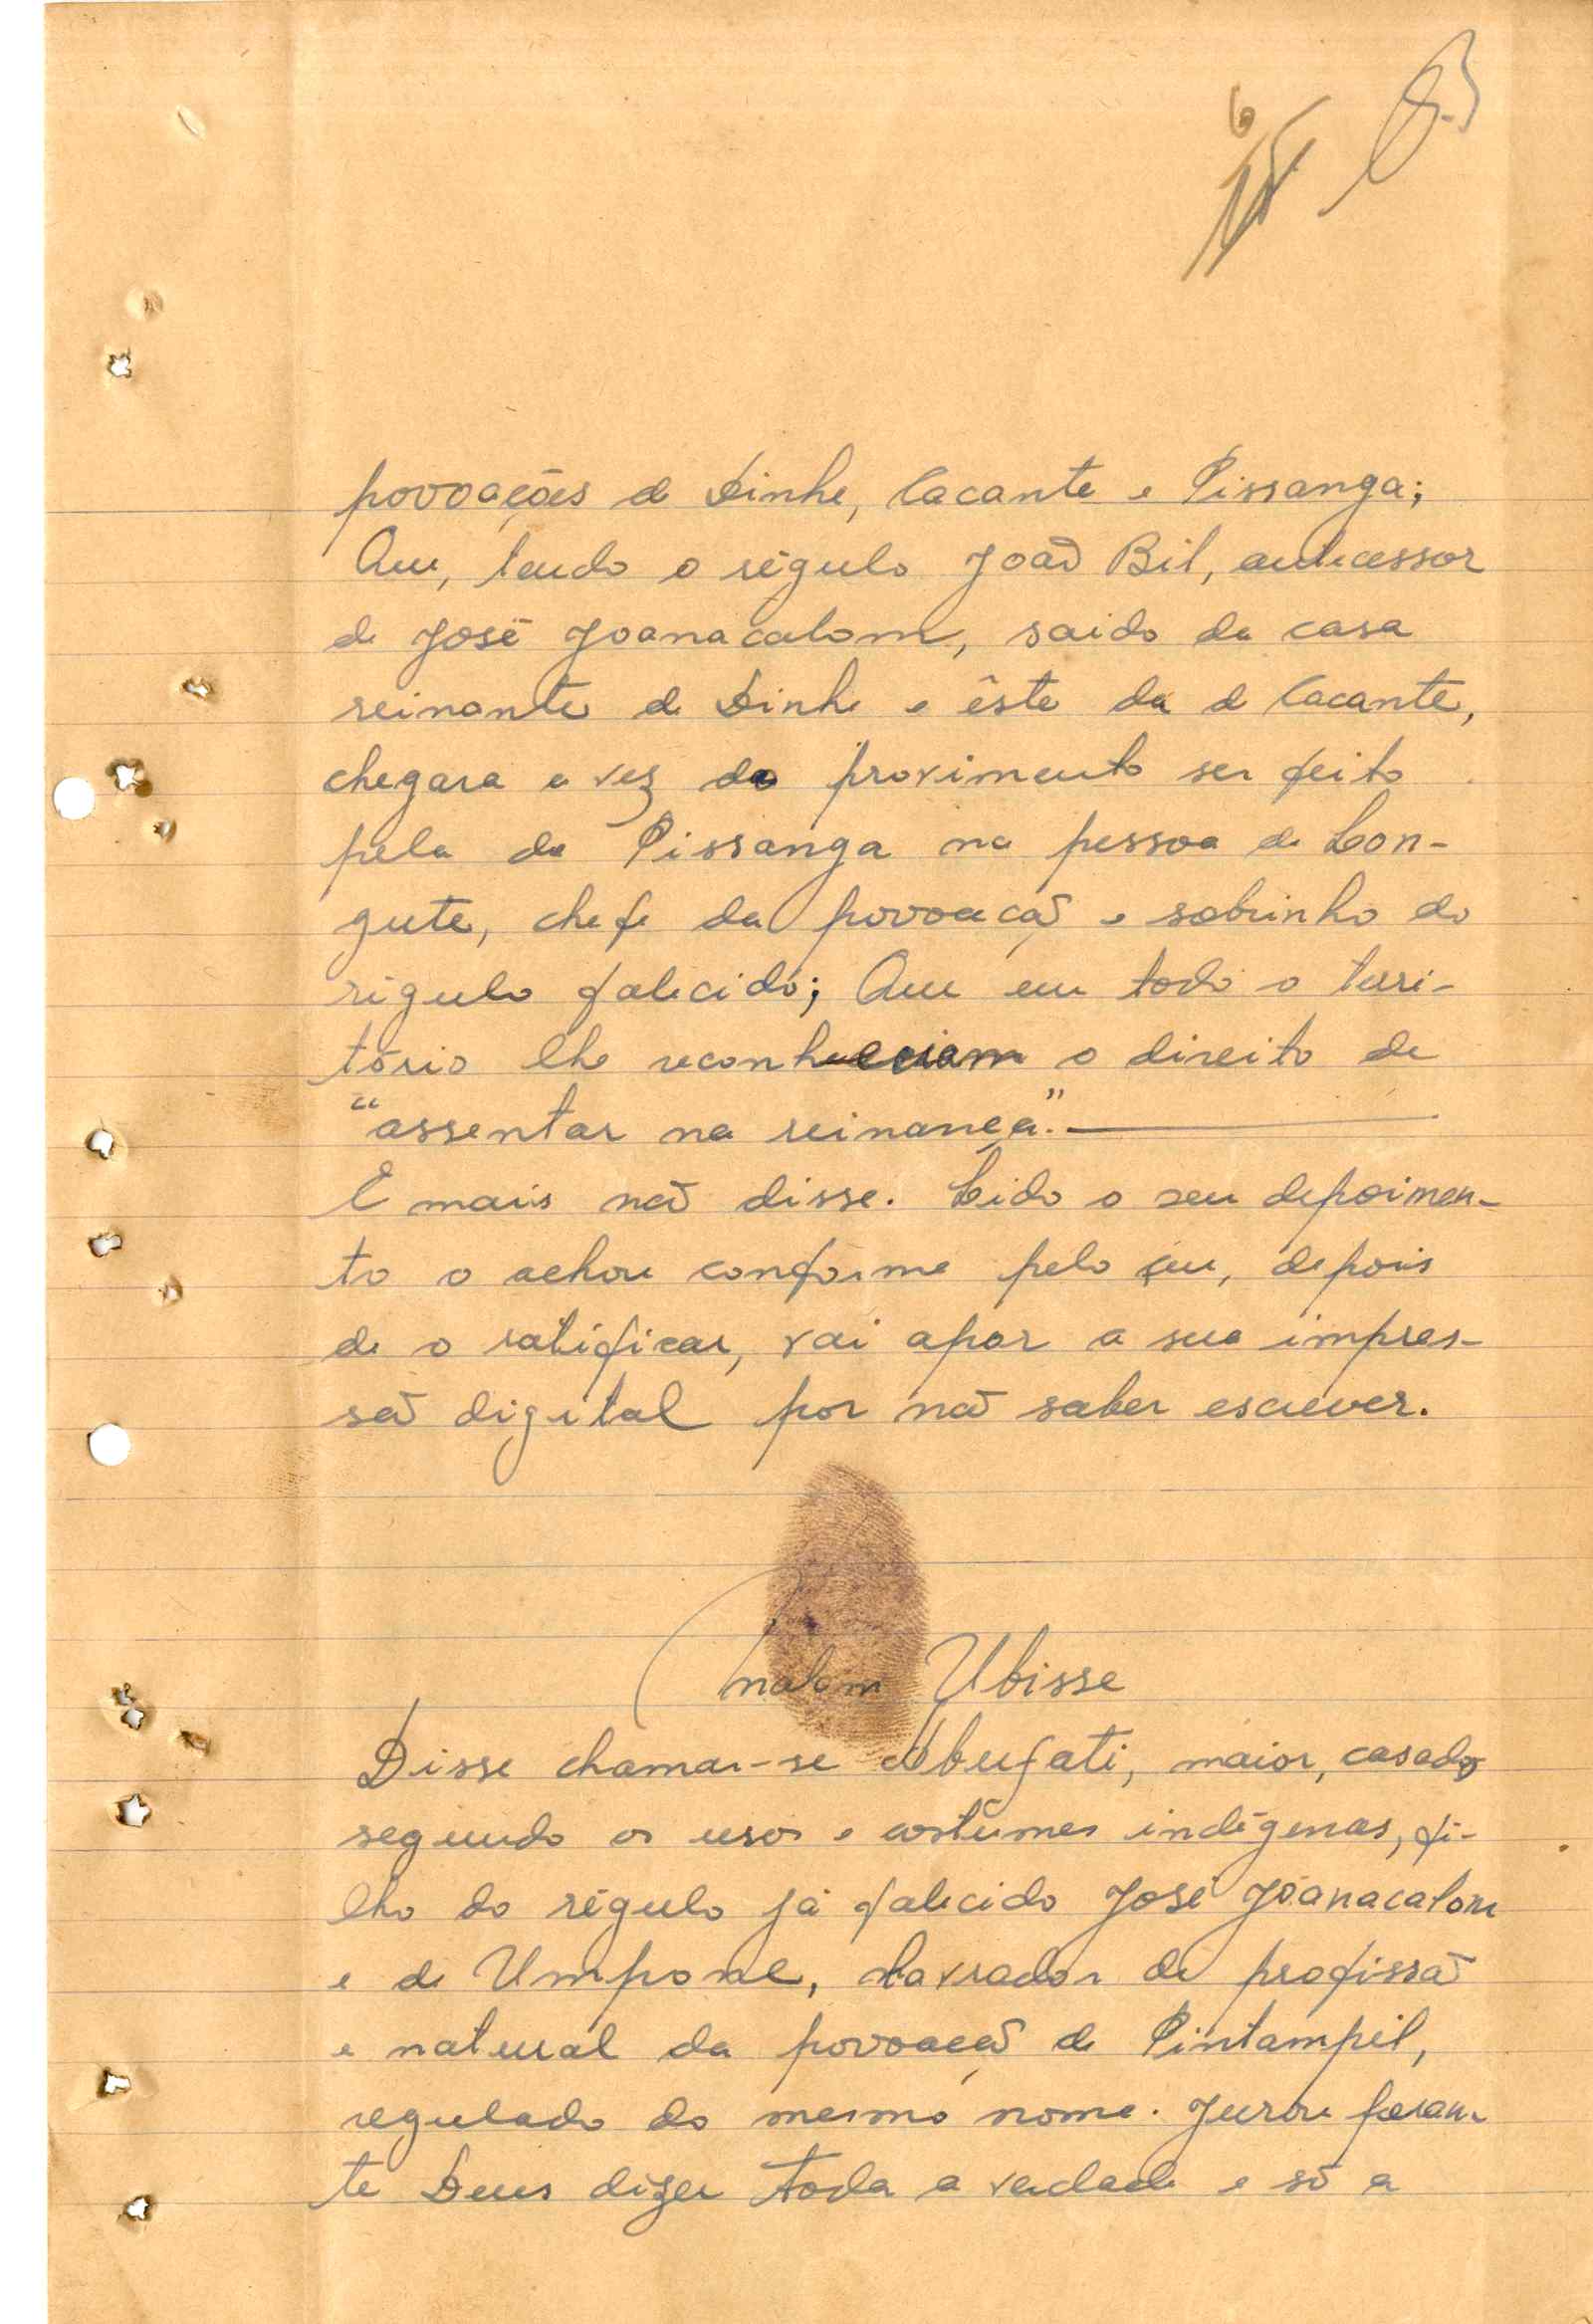 6
povoações de Dinhe, Cacante e Pissanga;
Que, tendo o régulo João Bil, antecessor
de José Joanacalom, saido da casa
reinante de Dinhe e êste da de Cacante,
chegara a vez do provimento ser feito
pela de Pissanga na pessoa de Lon-
gute, chefe da povoação e sobrinho do
régulo falecido; Que em todo o terri-
tório lhe reconheciam o direito de
"assentar na reinança".
E mais não disse. Lido o seu depoimen-
to o achou conforme pelo que, depois
de o ratificar, vai apor a sua impres-
são digital por não saber escrever.
Ubisse
Disse chamar-se Obufati, maior, casado
segundo os usos e costumes indígenas, fi-
lho do régulo já falecido José Joanacalom
e de Umpone, lavrador de profissão
e natural da povoação de Pintampil,
regulado do mesmo nome. Jurou peran-
te Deus dizer toda a verdade e só a